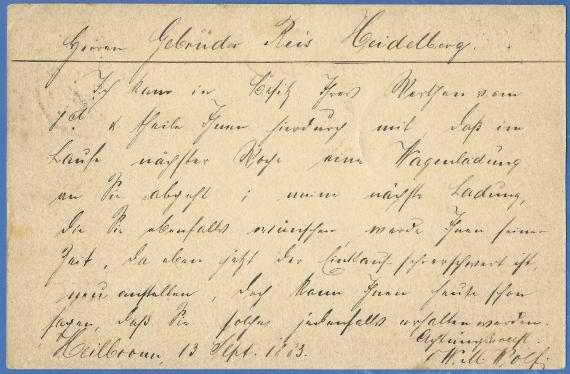 Herren Gebrüder Reis Heidelberg.
Ich kam in Besitz Ihres Werthen vom
& theile Ihnen hierdurch mit, daß im
Laufe nächster Woche eine Wagenladung
an Sie abgeht; meine nächste Ladung,
die Sie ebenfalls wünschen werde Ihnen seiner
Zeit, da eben jetzt der Einkauf sehr erschwert ist,
anstellen, doch kann Ihnen heute schon
sagen, daß Sie solche jedenfalls erhalten werden.
Achtungsvoll
Heilbronn, 13 Sept. 1883.
Wolf